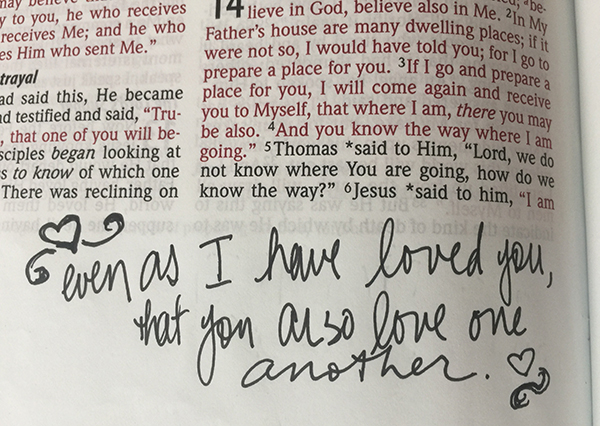 y to you, he who receives
receives Me; and he who
es Him who sent Me."
trayal
ad said this, He became
nd testified and said, "Tru-
, that one of you will be-
sciples began looking at
s to know of which one
There was reclining on
14 lieve in God, believe also in Me. 2In My
Father's house are many dwelling places; if it
were not so, I would have told you; for I go to
prepare a place for you. 3If I go and prepare a
place for you, I will come again and receive
you to Myself, that where I am, there you may
be also. 4And you know the way where I am
going." 5Thomas *said to Him, "Lord, we do
not know where You are going, how do we
know the way?" 6Jesus *said to him, "I am
even as I have loved you,
that you also love one
another.